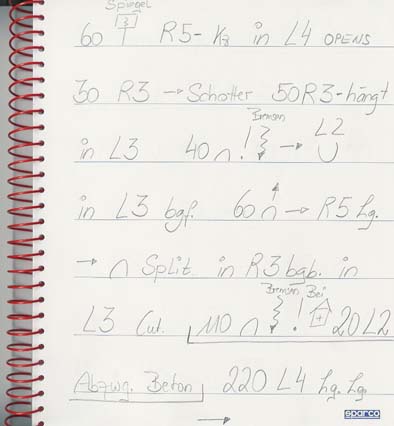 Spiegel
3
60 R5- Kz in L4 OPENS
30 R3 → Schotter 50R3-hängt
Bremsen
in L3 40 ! → L2
in L3 bgf. 60 → R5 Lg.
→ Split in R3 bgb. in
Bremsen Bei
L3 Cut. 110 ! 20L2
Abzwg. Beton 220 L4 Lg. Lg.
→
sparco